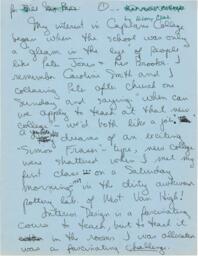 for Bill Van Pass ①
by Dinny Clark
My interest in Capilano College
began when the school was only
a gleam in the eye of people
like Pete Jones & Les Brooks. I
remember Caroline Smith and I
collaring Pete after church on
Sunday and saying, when can
we apply to teach at that new
college - we'd both like a job.
dreams of an exciting
-Simon Fraser-type, new College
were shattered when I met my
first class on a Saturday
morning in the dirty awkward
pottery lab. of West Van High!
Interior Design is a fascinating
course to teach, but to teach it
in the rooms I was allocated
was a fascinating challenge.